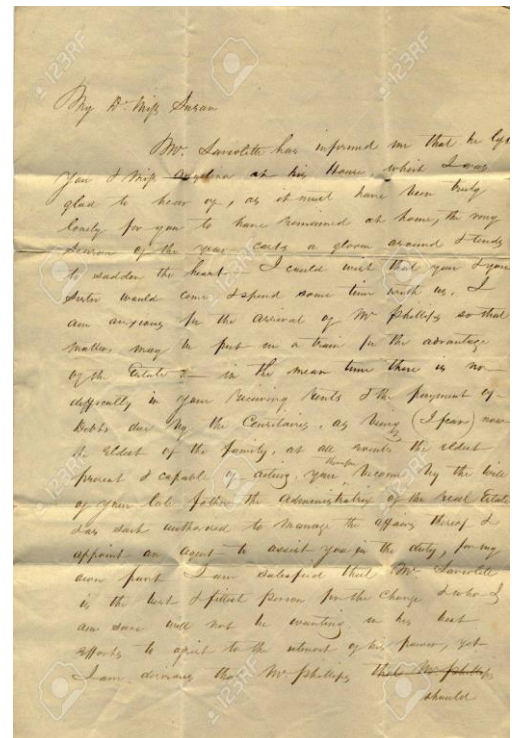 My Dr. Miss Susan
Mr. Larcolette has informed me that he left
You & Miss at his House, which I was
glad to hear of, as it must have been truly
lonely for you to have remained at home, the very
season of the year casts a gloom around & tends
to sadden the heart. I could wish that you & your
Sister would come & spend some time with us. I
am anxious for the arrival of Mr Phillips so that
matters may be put in a train for the advantage
of the Estate in the mean time there is no
difficulty in your receiving Rents & the payment of
Debts due by the as being (I fear) now
the Eldest of the family, at all events the eldest
present & capable of acting, you therefore become by the will
of your late father the Administratrix of the real Estate
& as such authorised to manage the affairs thereof &
appoint an agent to assist you in the duty, for my
own part I am satisfied that Mr Larcolette
is the best & fittest person for the charge & who I
am sure will not be wanting in his best
efforts to assist to the utmost of his power, yet
I am desirous that Mr Phillips that Mr Phillips
should
123RF